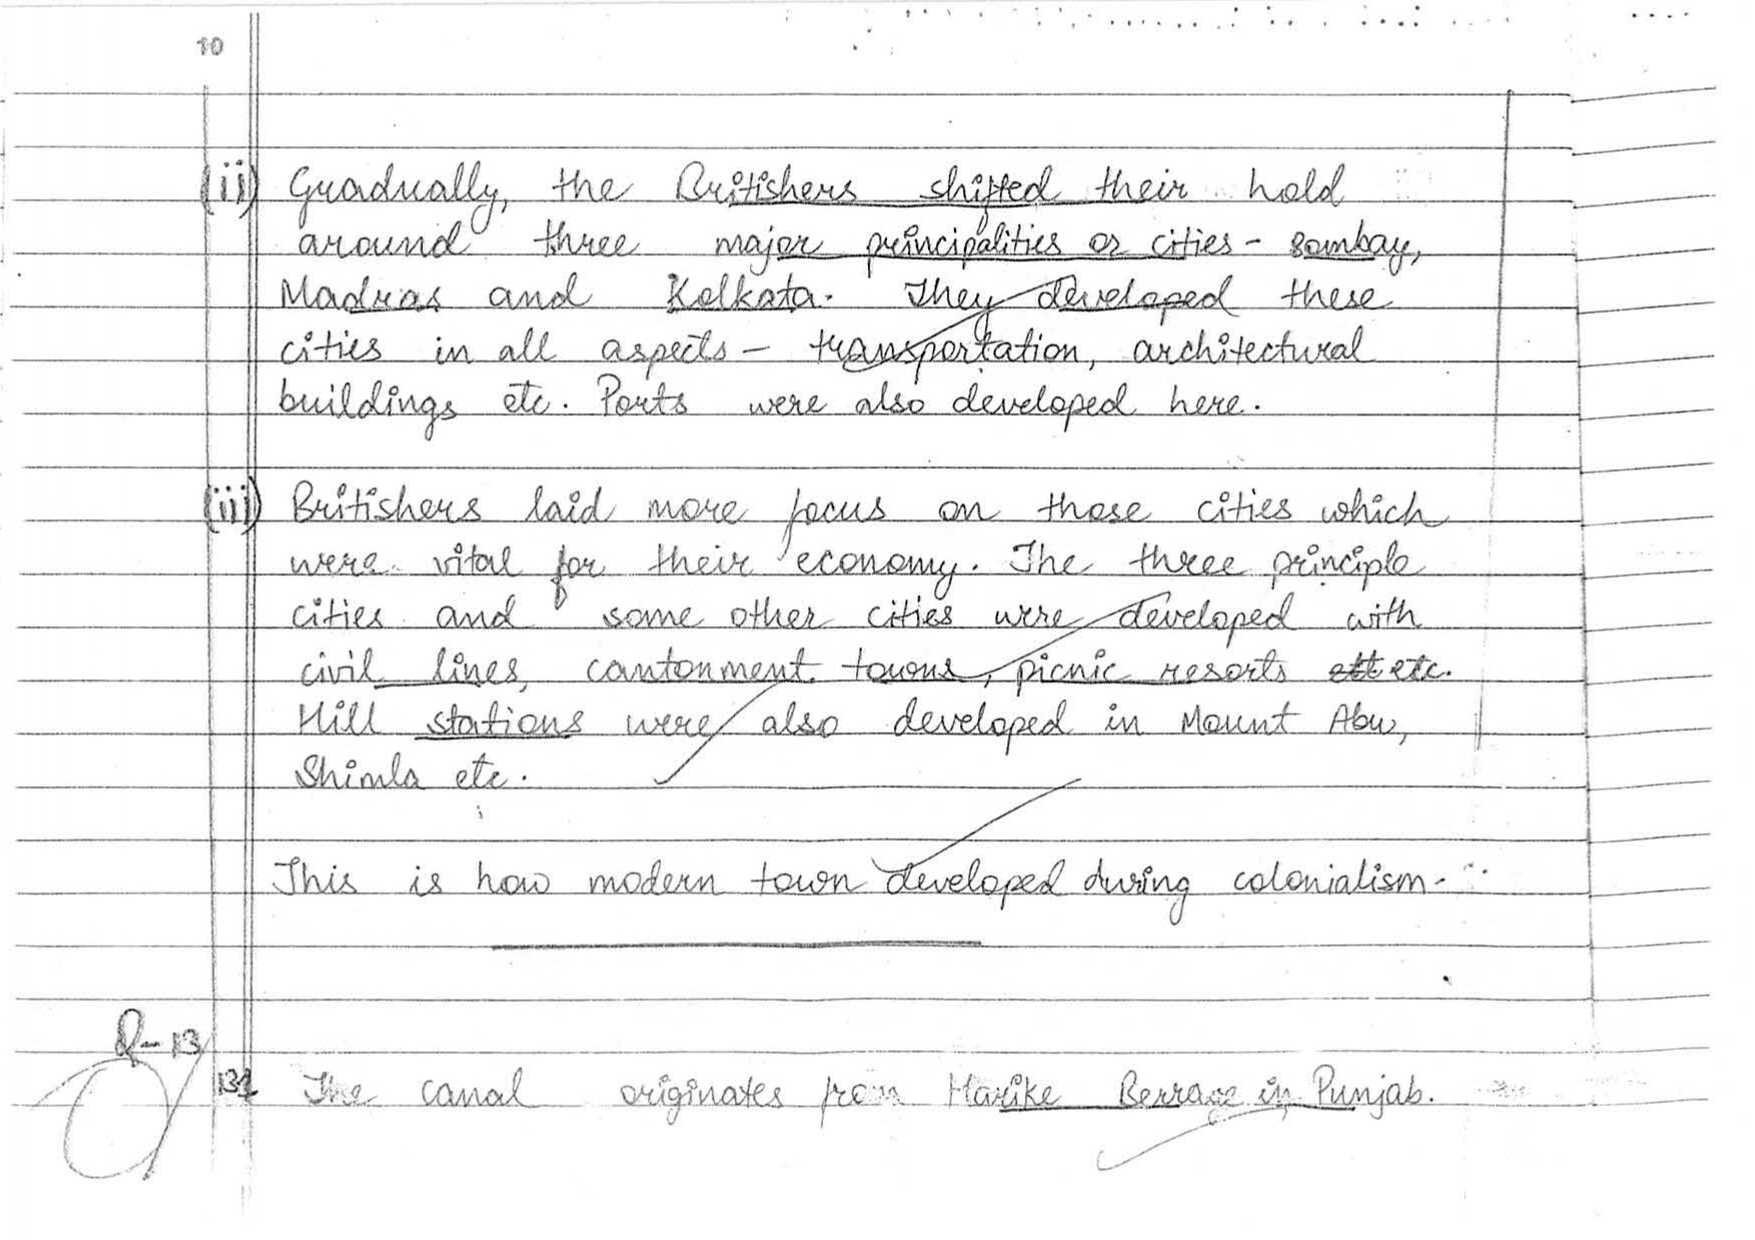 10
(ii) Gradually, the Britishers shifted their hold
around three major principalities or cities - Bombay,
Madras and Kolkata. They developed these
cities in all aspects - transportation, architectural
buildings etc. Ports were also developed here.
(iii) Britishers laid more focus on those cities which
were vital for their economy. The three principle
cities and some other cities were developed with
civil lines, cantonment towns, picnic resorts etc.
Hill stations were also developed in Mount Abu,
Shimla etc.
This is how modern town developed during colonialism.
Q-13
The canal originates from Harike Berrage in Punjab.